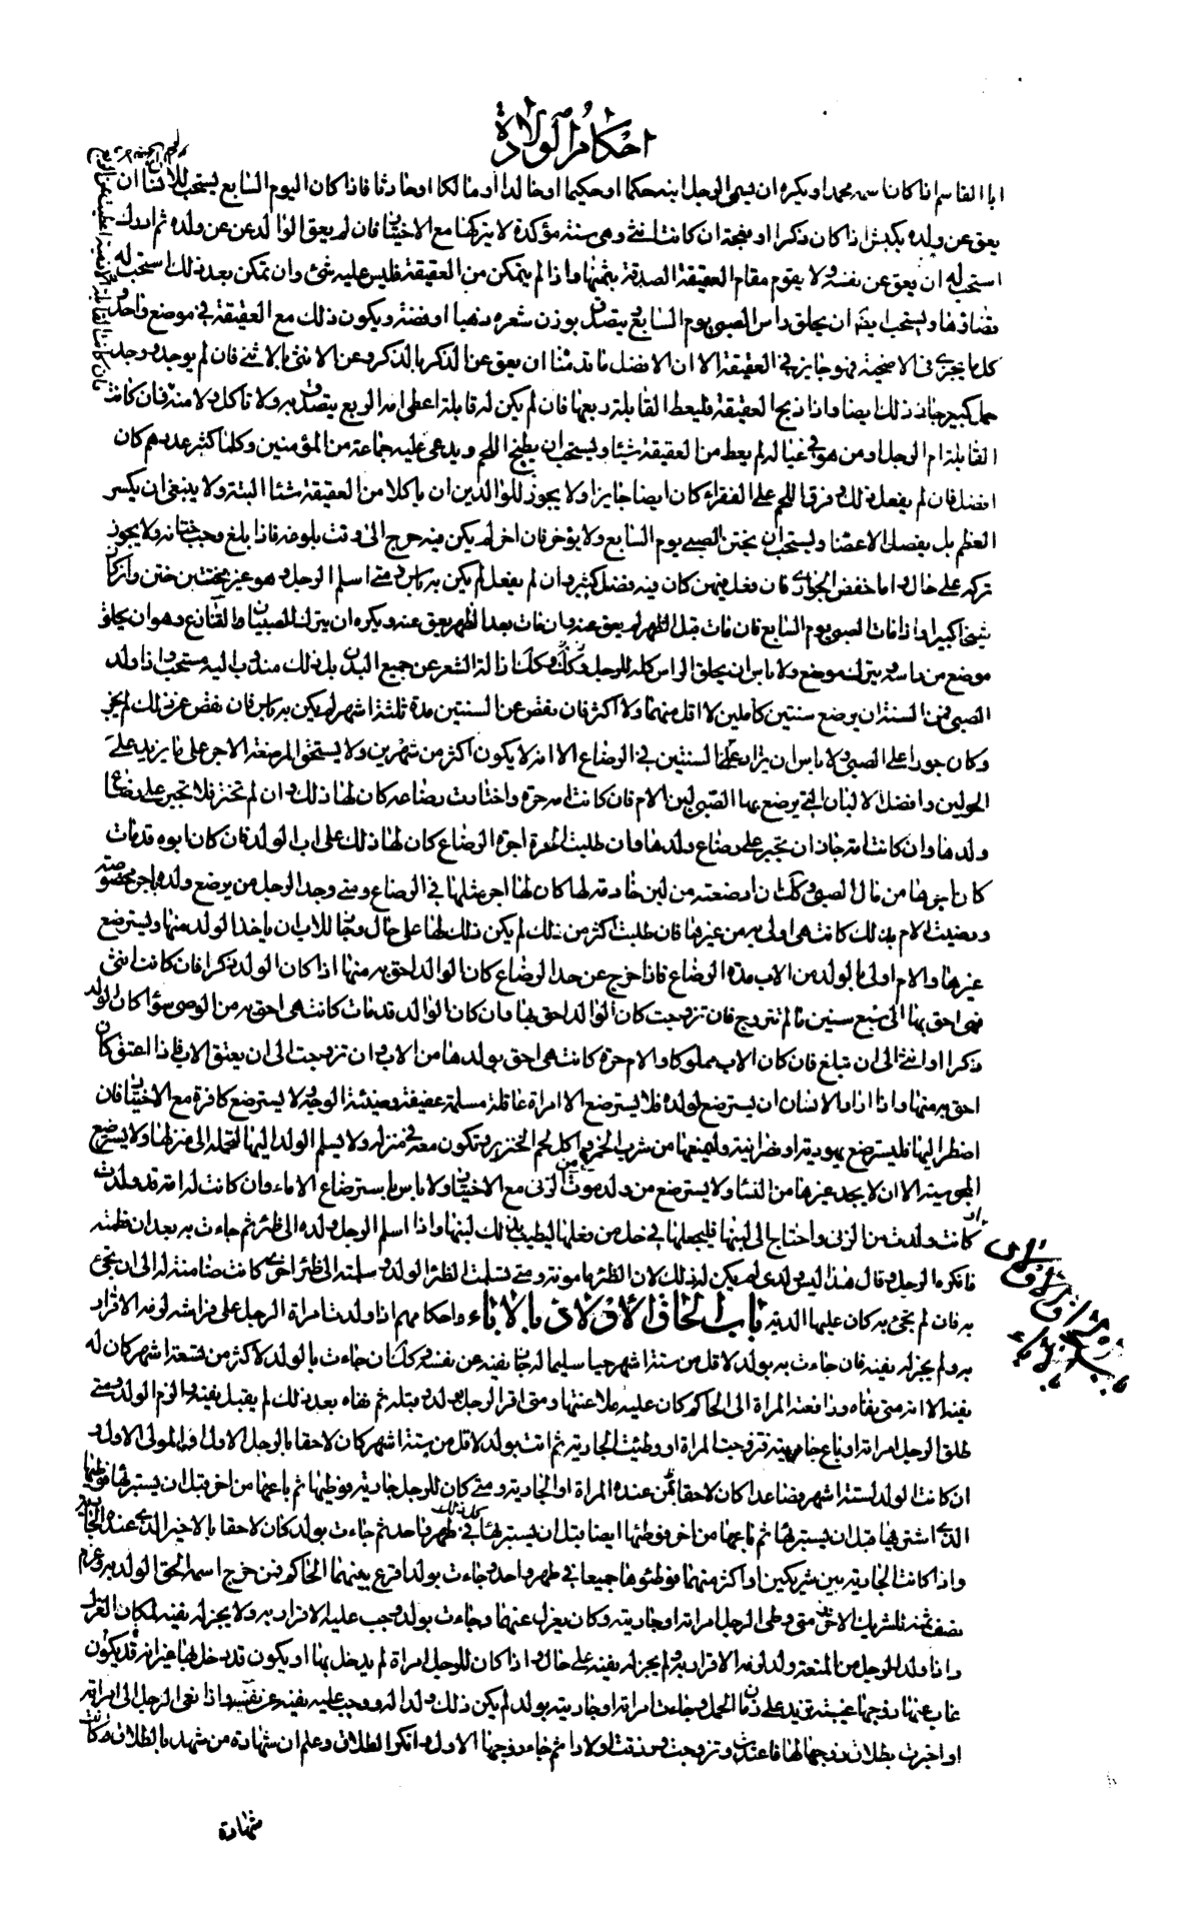 احكام الولادة
ابا القاسم اذا كان اسمه محمدا ويكره ان يسمى الرجل ابنه حكما او حكيما او خالدا او مالكا او حارثا فاذا كان اليوم السابع يستحب للانسان ان
يعق عن ولده بكبش اذا كان ذكرا او نعجة ان كانت انثى وهى سنة مؤكدة لا يتركها مع الاختيار فان لم يعق الوالد عن ولده ثم ادرك
استحب له ان يعق عن نفسه ولا يقوم مقام العقيقة الصدقة بثمنها واذا لم يتمكن من العقيقة فليس عليه شئ وان تمكن بعد ذلك استحب له
قضاؤها ويستحب ايضا ان يحلق راس الصبى يوم السابع ويتصدق بوزن شعره ذهبا او فضة ويكون ذلك مع العقيقة فى موضع واحد و
كل ما يجزى فى الاضحية فهو جايز فى العقيقة الا ان الافضل ما قدمنا ان يعق عن الذكر بالذكر وعن الانثى بالانثى فان لم يوجد ووجد
حمل كبير جاز ذلك ايضا واذا ذبح العقيقة فليعط القابلة ربعها فان لم يكن له قابلة اعطى امه الربع يتصدق به ولا تاكل منه فان كانت
القابلة ام الرجل او من هو فى عياله لم يعط من العقيقة شيئا ويستحب ان يطبخ اللحم ويدعى عليه جماعة من المؤمنين وكلما كثر عددهم كان
افضل فان لم يفعل ذلك وفرق اللحم على الفقراء كان ايضا جايزا ولا يجوز للوالدين ان ياكلا من العقيقة شئا البتة ولا ينبغى ان يكسر
العظم بل يفصل الاعضا ويستحب ان يختن الصبى يوم السابع ولا يؤخر فان اخر لم يكن فيه حرج الى وقت بلوغه فاذا بلغ وجب ختانه ولا يجوز
تركه على حال واما خفض الجوارى فان فعل فيهن كان فيه فضل كثير وان لم يفعل لم يكن به باس ومتى اسلم الرجل وهو غير مختتن ختن وان كان
شيخا كبيرا واذا مات الصبى يوم السابع فان مات قبل الظهر لم يعق عنه وان مات بعد الظهر يعق عنه ويكره ان يترك للصبيان القنازع وهو ان يحلق
موضع من راسه ويترك موضع ولا باس ان يحلق الراس كله للرجل وكذلك ازالة الشعر عن جميع البدن بل ذلك مندوب اليه مستحب واذا ولد
الصبى فمن السنة ان يرضع سنتين كاملين لا اقل منهما ولا اكثر فان نقص عن السنتين مدة ثلثة اشهر لم يكن به باس فان نقص عن ذلك لم يجز
وكان جورا على الصبى ولا باس ان يزاد على السنتين فى الرضاع الا انه لا يكون اكثر من شهرين ولا يستحق المرضعة الاجر على ما يزيد على
الحولين وافضل الالبان التى يرضع بها الصبى لبن الام فان كانت امه حرة واختارت رضاعه كان لها ذلك وان لم تختر فلا تجبر على رضاع
ولدها وان كانت امة جاز ان تجبر على رضاع ولدها وان طلبت الحرة اجرة الرضاع كان لها ذلك على اب الولد فان كان ابوه قد مات
كان اجرها من مال الصبى وكذلك ان ارضعته من لبن خادمة لها كان لها اجر مثلها فى الرضاع ومتى وجد الرجل من يرضع ولده باجر مخصوصة
ورضيت الام بذلك كانت هى اولى به من غيرها فان طلبت اكثر من ذلك لم يكن ذلك لها على حال وجاز للاب ان ياخذ الولد منها ويسترضع
غيرها والام اولى بالولد من الاب مدة الرضاع فاذا خرج عن حد الرضاع كان الوالد احق به منها اذا كان الولد ذكرا فان كانت انثى
فهى احق بها الى سبع سنين ما لم تتزوج فان تزوجت كان الوالد احق بها وان كان الوالد قد مات كانت هى احق به من الوصى سواء كان الولد
ذكرا او انثى الى ان تبلغ فان كان الاب مملوكا والام حرة كانت هى احق بولدها من الاب وان تزوجت الى ان يعتق الاب فاذا اعتق كان
احق به منها واذا اراد الانسان ان يسترضع لولده فلا يسترضع الا امراة عاقلة مسلمة عفيفة وضيئة الوجه ولا يسترضع كافرة مع الاختيار فان
اضطر اليها فليسترضع يهودية او نصرانية وليمنعها من شرب الخمر واكل لحم الخنزير وتكون معه فى منزله ولا يسلم الولد اليها لتحمله الى منزلها ولا يسترضع
المجوسية الا ان لا يجد غيرها من النساء ولا يسترضع من ولدت من الزنى مع الاختيار ولا باس باسترضاع الاماء وان كانت له امة قد ولدت
كانت ولدت من الزنى واحتاج الى لبنها فليجعلها فى حل من فعلها ليطيب بذلك لبنها واذا اسلم الرجل ولده الى ظئر ثم جاءت به بعد ان فطمته
فانكره الرجل وقال هذا ليس ولدى لم يكن له ذلك لان الظئر مامونة ومتى تسلمت الظئر الولد وسلمته الى ظئر اخرى كانت ضامنة له الى ان تجئ
به فان لم تجئ به كان عليها الدية باب الحاق الاولاد بالاباء واحكامهم اذا ولدت امراة الرجل على فراشه لزمه الاقرار
به ولم يجز له نفيه فان جاءت به بولد لاقل من ستة اشهر حيا سليما له جاز نفيه عن نفسه وكذلك ان جاءت بالولد لاكثر من تسعة اشهر كان له
نفيه الا انه متى نفاه ورافعته المراة الى الحاكم كان عليه ملاعنتها ومتى اقر الرجل بولد وقبله ثم نفاه بعد ذلك لم يقبل نفيه والزم الولد ومتى
طلق الرجل امراته او باع جاريته فتزوجت المراة او وطئت الجارية ثم اتت بولد لاقل من ستة اشهر كان لاحقا بالرجل الاول او المولى الاول و
ان كانت الولد لستة اشهر فصاعدا كان لاحقا بمن عنده المراة او الجارية ومتى كان للرجل جارية فوطئها ثم باعها من اخر قبل ان يستبرئها فوطئها
الذى اشتراها قبل ان يستبرئها ثم باعها من اخر فوطئها ايضا قبل ان يستبرئها كل ذلك فى طهر واحد ثم جاءت بولد كان لاحقا بالاخير الذى عنده الجارية
واذا كانت الجارية بين شريكين او اكثر منهما فوطئوها جميعا فى طهر واحد وجاءت بولد اقرع بينهما الحاكم فمن خرج اسمه الحق الولد به وغرم
نصف ثمنه للشريك الاخر ومتى وطى الرجل امراته او جاريته وكان يعزل عنهما وجاءت بولد وجب عليه الاقرار به ولا يجوز له نفيه لمكان العزل
واذا ولد للرجل من المتعة ولد لزمه الاقرار به ولم يجز له نفيه على حال واذا كان للرجل امراة لم يدخل بها او يكون قد دخل بها غير انه قد يكون
غاب عنها زوجها غيبة تزيد على زمان الحمل وجاءت امراته او جاريته بولد لم يكن ذلك ولدا له ووجب عليه نفيه عن نفسه واذا نعى الرجل الى امراته
او اخبرت بطلاق زوجها لها فاعتدت وتزوجت ورزقت اولادا ثم جاء زوجها الاول وانكر الطلاق وعلم ان شهادة من شهد بالطلاق كانت
شهادة